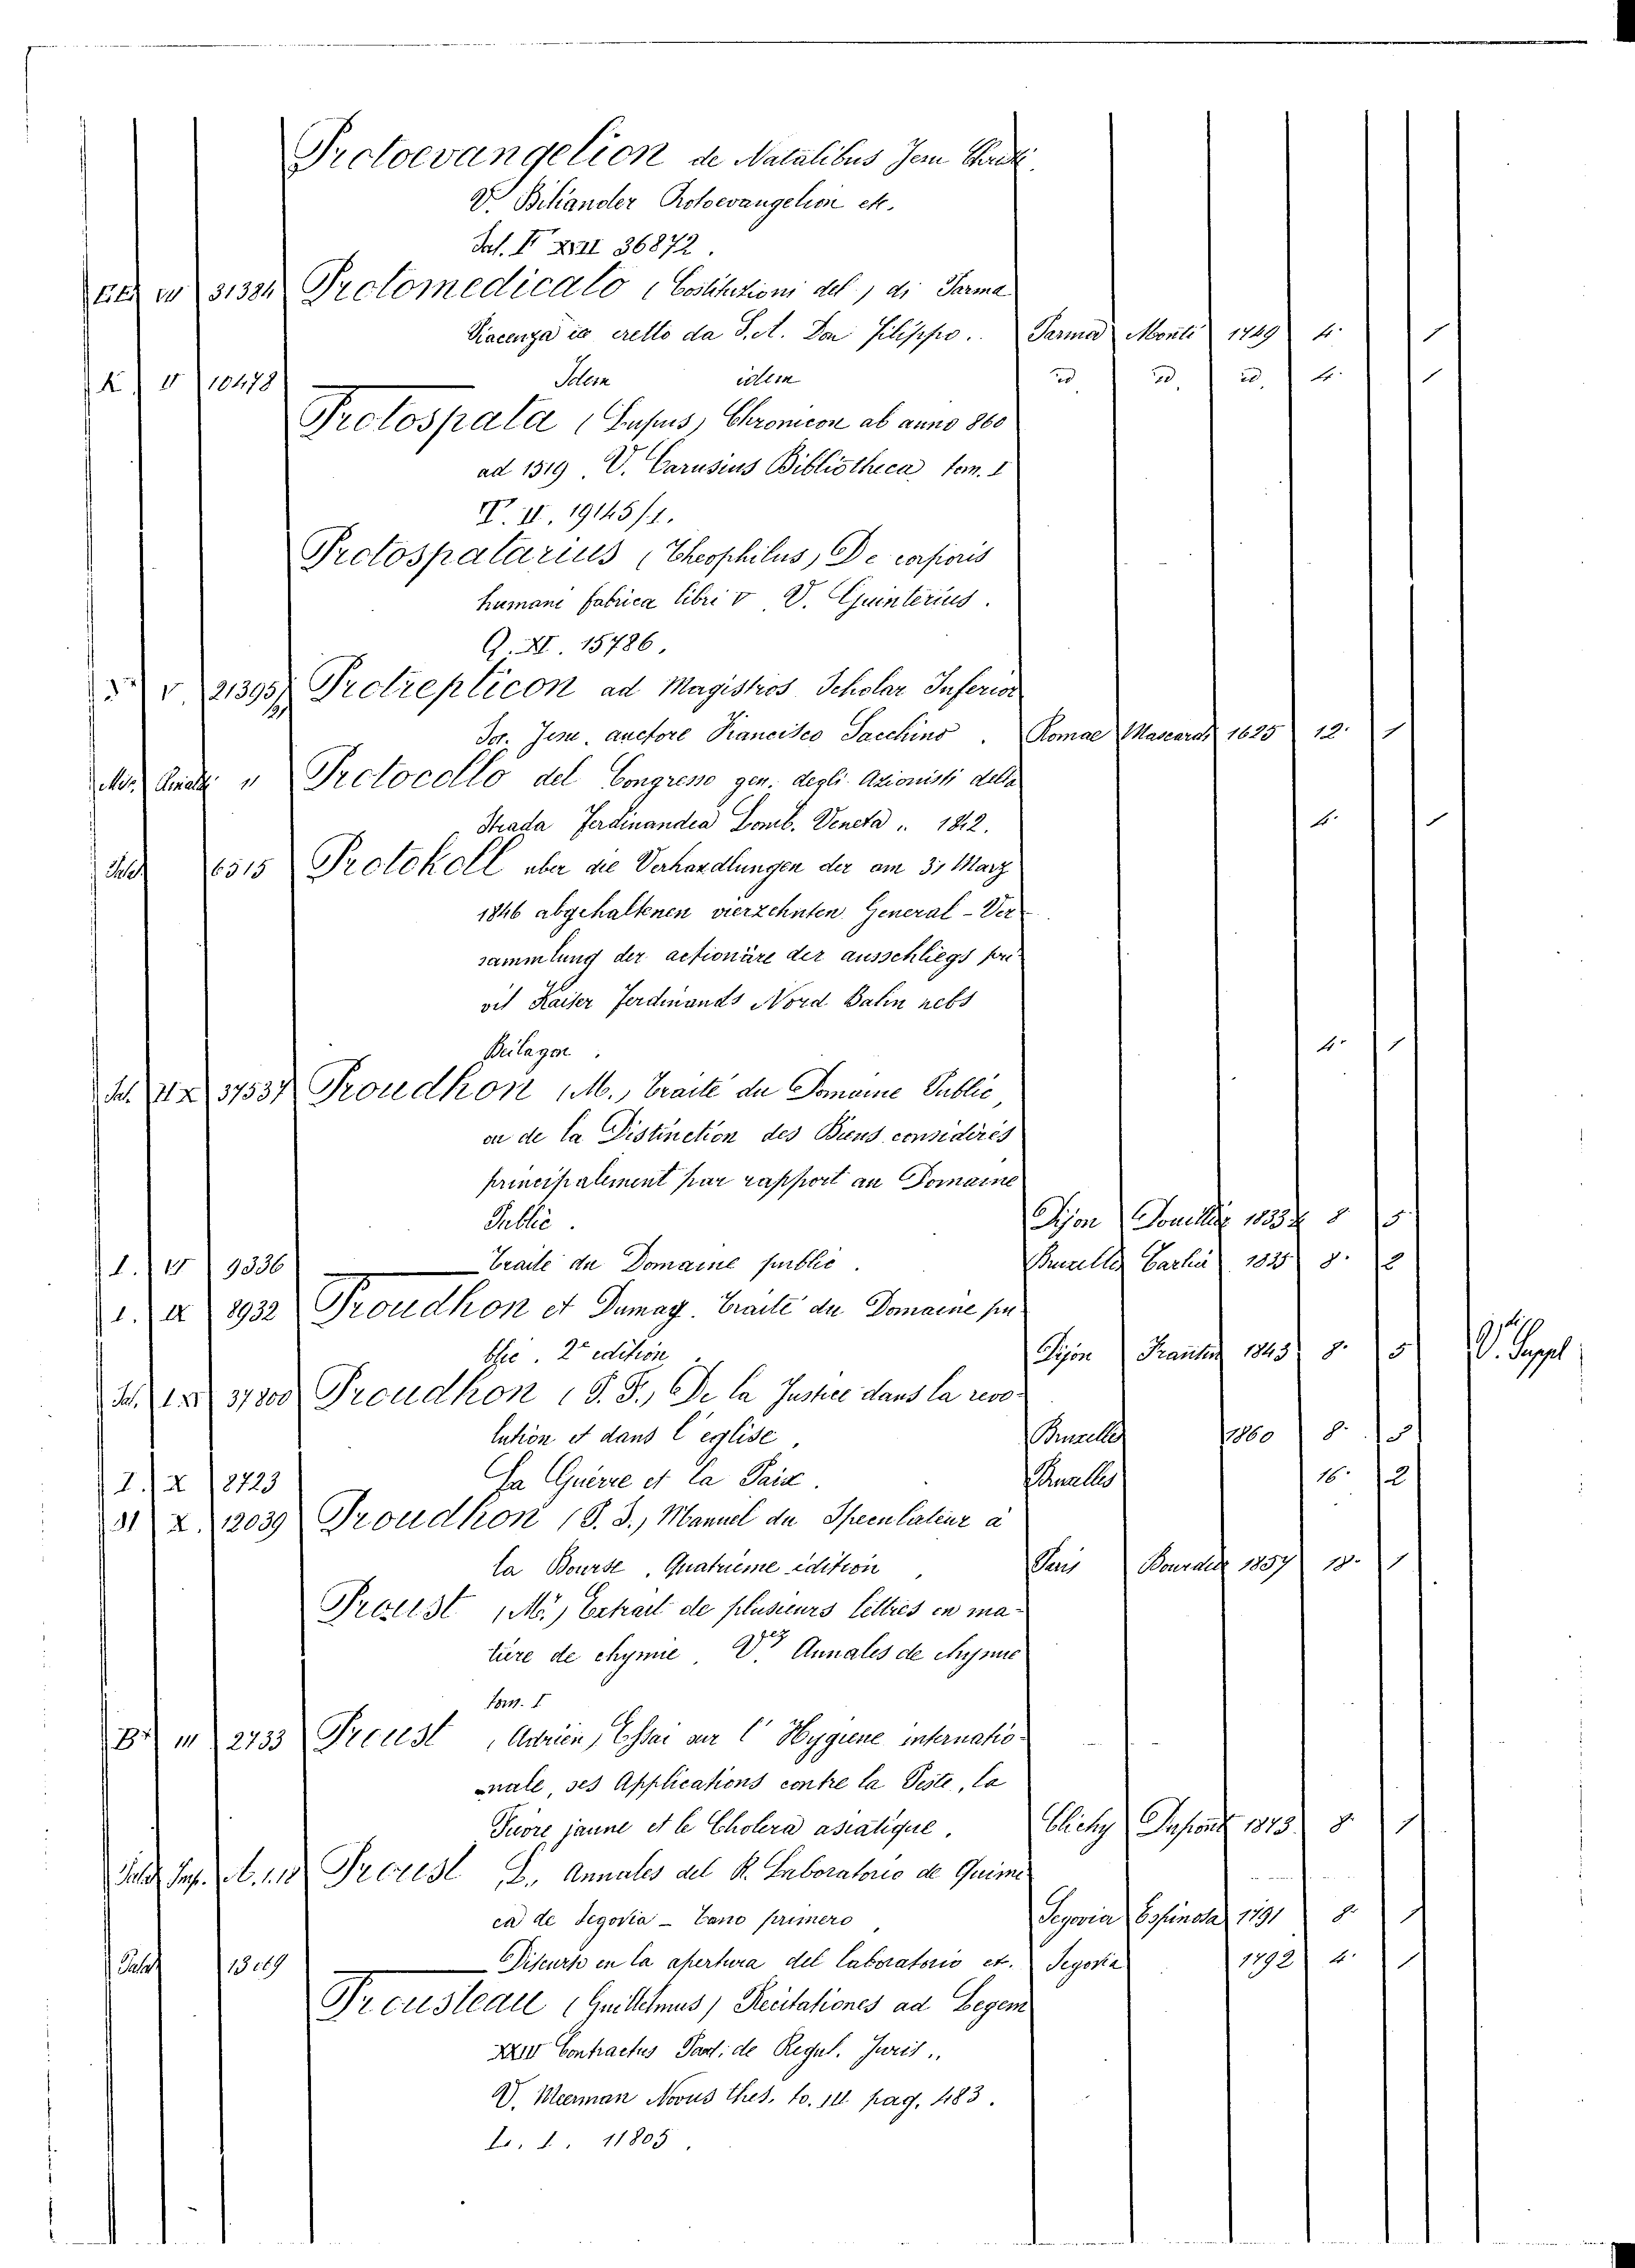 Protoevangelion de Natalibus Jesu
V. Biliander Rotoevangelion etc.
Sal. II XVII 36872.
31384 Protomedicato (Costituzioni del) di Parma
Piacenza ec eretto da S. A. Don Filippo. Parma Monti 1749 4. 1
K II 10478 Idem idem id id. id. 4. 1
Protospata (Lupus) Chronicon ab anno 860
ad 1519. V. Carusius Bibliotheca tom. I
T. II. 19145/1.
Protospatarius (Theophilus) De corporis
humani fabrica libri V V. Guinterius.
Q. XI. 15786.
V. 21395/ Protrepticon ad Magistros Scholar Inferior
Soc. Jesu. auctore Francisco Sacchino. Romae Mascardi 1625 12. 1
Protocollo del Congresso gen. degli Azionisti della
Strada Ferdinandea Lomb. Veneta .. 1842. 4. 1
6515 Protokoll uber die Verhandlungen der am 31 Marz
1846 abgehaltenen vierzehnten General-Ver
sammlung der actionäre der ausschliegs pri
vil Kaiser Ferdinands Nord Bahn nebs
Beilagen. 4. 1
37537 Proudhon (M.) Traité du Domaine Public,
ou de la Distinction des Biens considérés
principalement par rapport au Domaine
Public. Dijon 8 5
I. VI 9336 Traité du Domaine public. Bruxelles Tarlier 1835 8. 2
I. IX 8932 Proudhon et Dumay. Traité du Domaine pu
blic. 2e edition. Dijon Frantin 1843 8. 5 V. Suppl
Sal. IX 37800 Proudhon (P. J.) De la Justice dans la revo-
lution et dans l'église, Bruxelles 1860 8. 5
I. X 8723 La Guerre et la Paix. Bruxelles 16. 2
31 X. 12039 Proudhon (P. J.) Manuel du Speculateur à
la Bourse. Quatrième édition, Paris 1857 18. 1
Proust (M.) Extrait de plusieurs lettres en ma-
tière de chymie Vez Annales de chymie
tom. I
B III 2733 Proust (Adrien) Essai sur l'Hygiene internatio-
nale, ses Applications contre la Peste, la
Fièvre jaune et le Cholera asiatique. Clichy Dupont 1873 8. 1
Proust L. Annales del R. Laboratorio de Quimi
ca de Segovia - Tano primero, Segovia Espinosa 1791 8. 1
Discurso en la apertura del laboratorio et. Segovia 1792 4. 1
Prousteau (Guillelmus) Recitationes ad Legem
XXIII Contractus Pand: de Regul. Juris..
V. Meerman Novus thes. to. III pag. 483.
L. I. 11805.